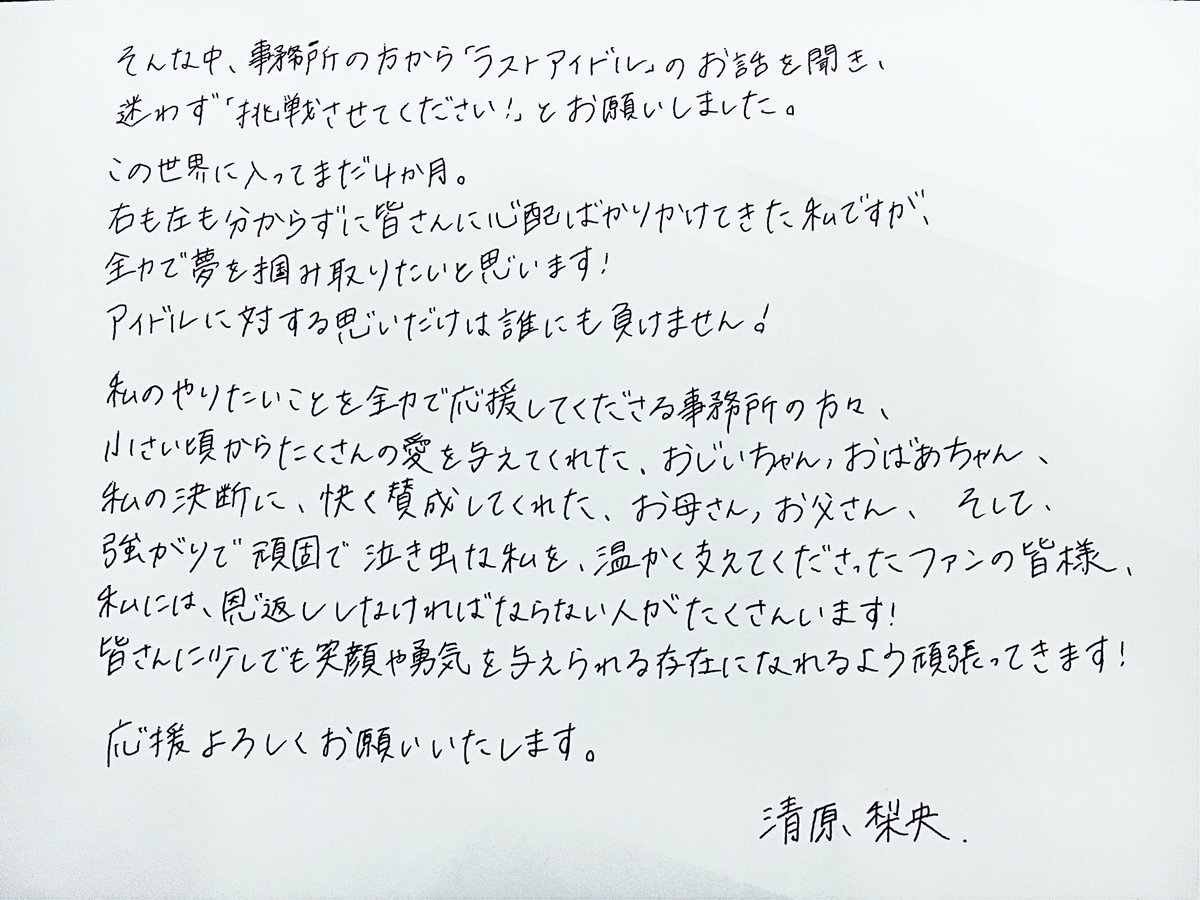 そんな中、事務所の方から「ラストアイドル」のお話を聞き、
迷わず「挑戦させてください!」とお願いしました。
この世界に入ってまだ4か月。
右も左も分からずに皆さんに心配ばかりかけてきた私ですが、
全力で夢を掴み取りたいと思います!
アイドルに対する思いだけは誰にも負けません!
私のやりたいことを全力で応援してくださる事務所の方々、
小さい頃からたくさんの愛を与えてくれた、おじいちゃん,おばあちゃん、
私の決断に、快く賛成してくれた、お母さん,お父さん、そして、
強がりで頑固で泣き虫な私を、温かく支えてくださったファンの皆様、
私には、恩返ししなければならない人がたくさんいます!
皆さんに少しでも笑顔や勇気を与えられる存在になれるよう頑張ってきます!
応援よろしくお願いいたします。
清原梨央.